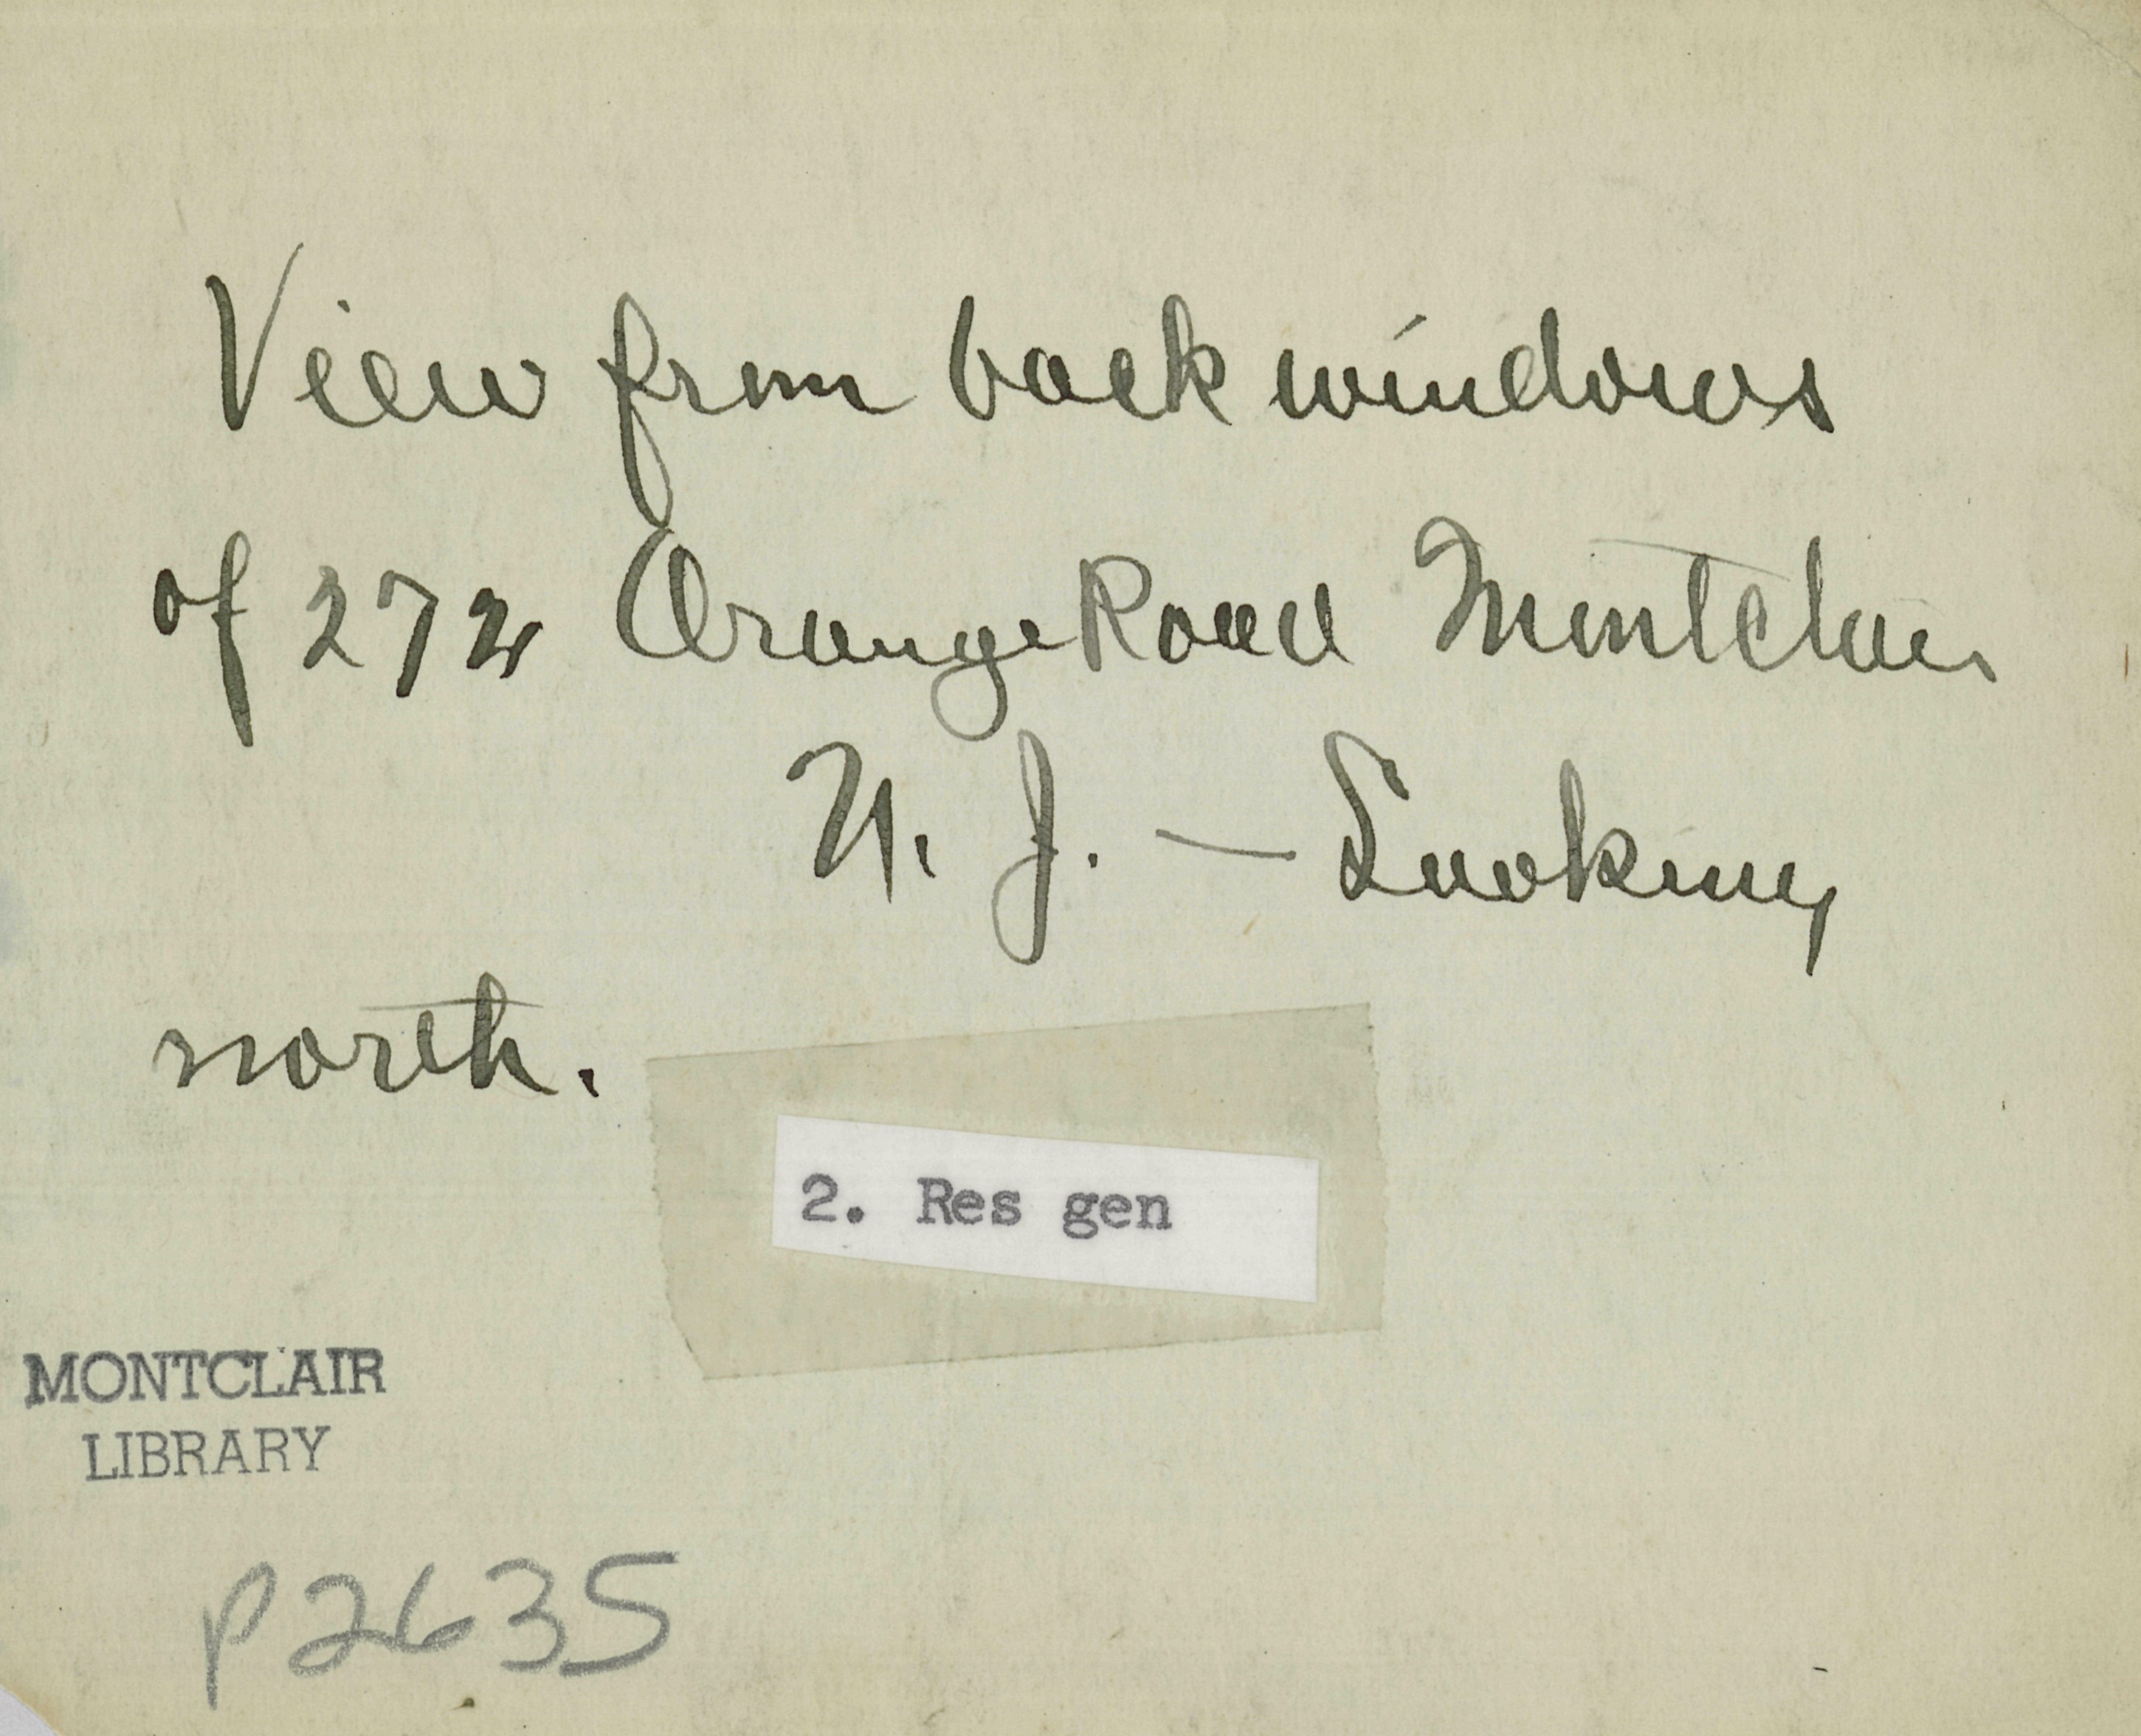 View from back windows
of 272 Orange Road Montclair
N. J. — Looking
north.
2. Res gen
MONTCLAIR
LIBRARY
P2635